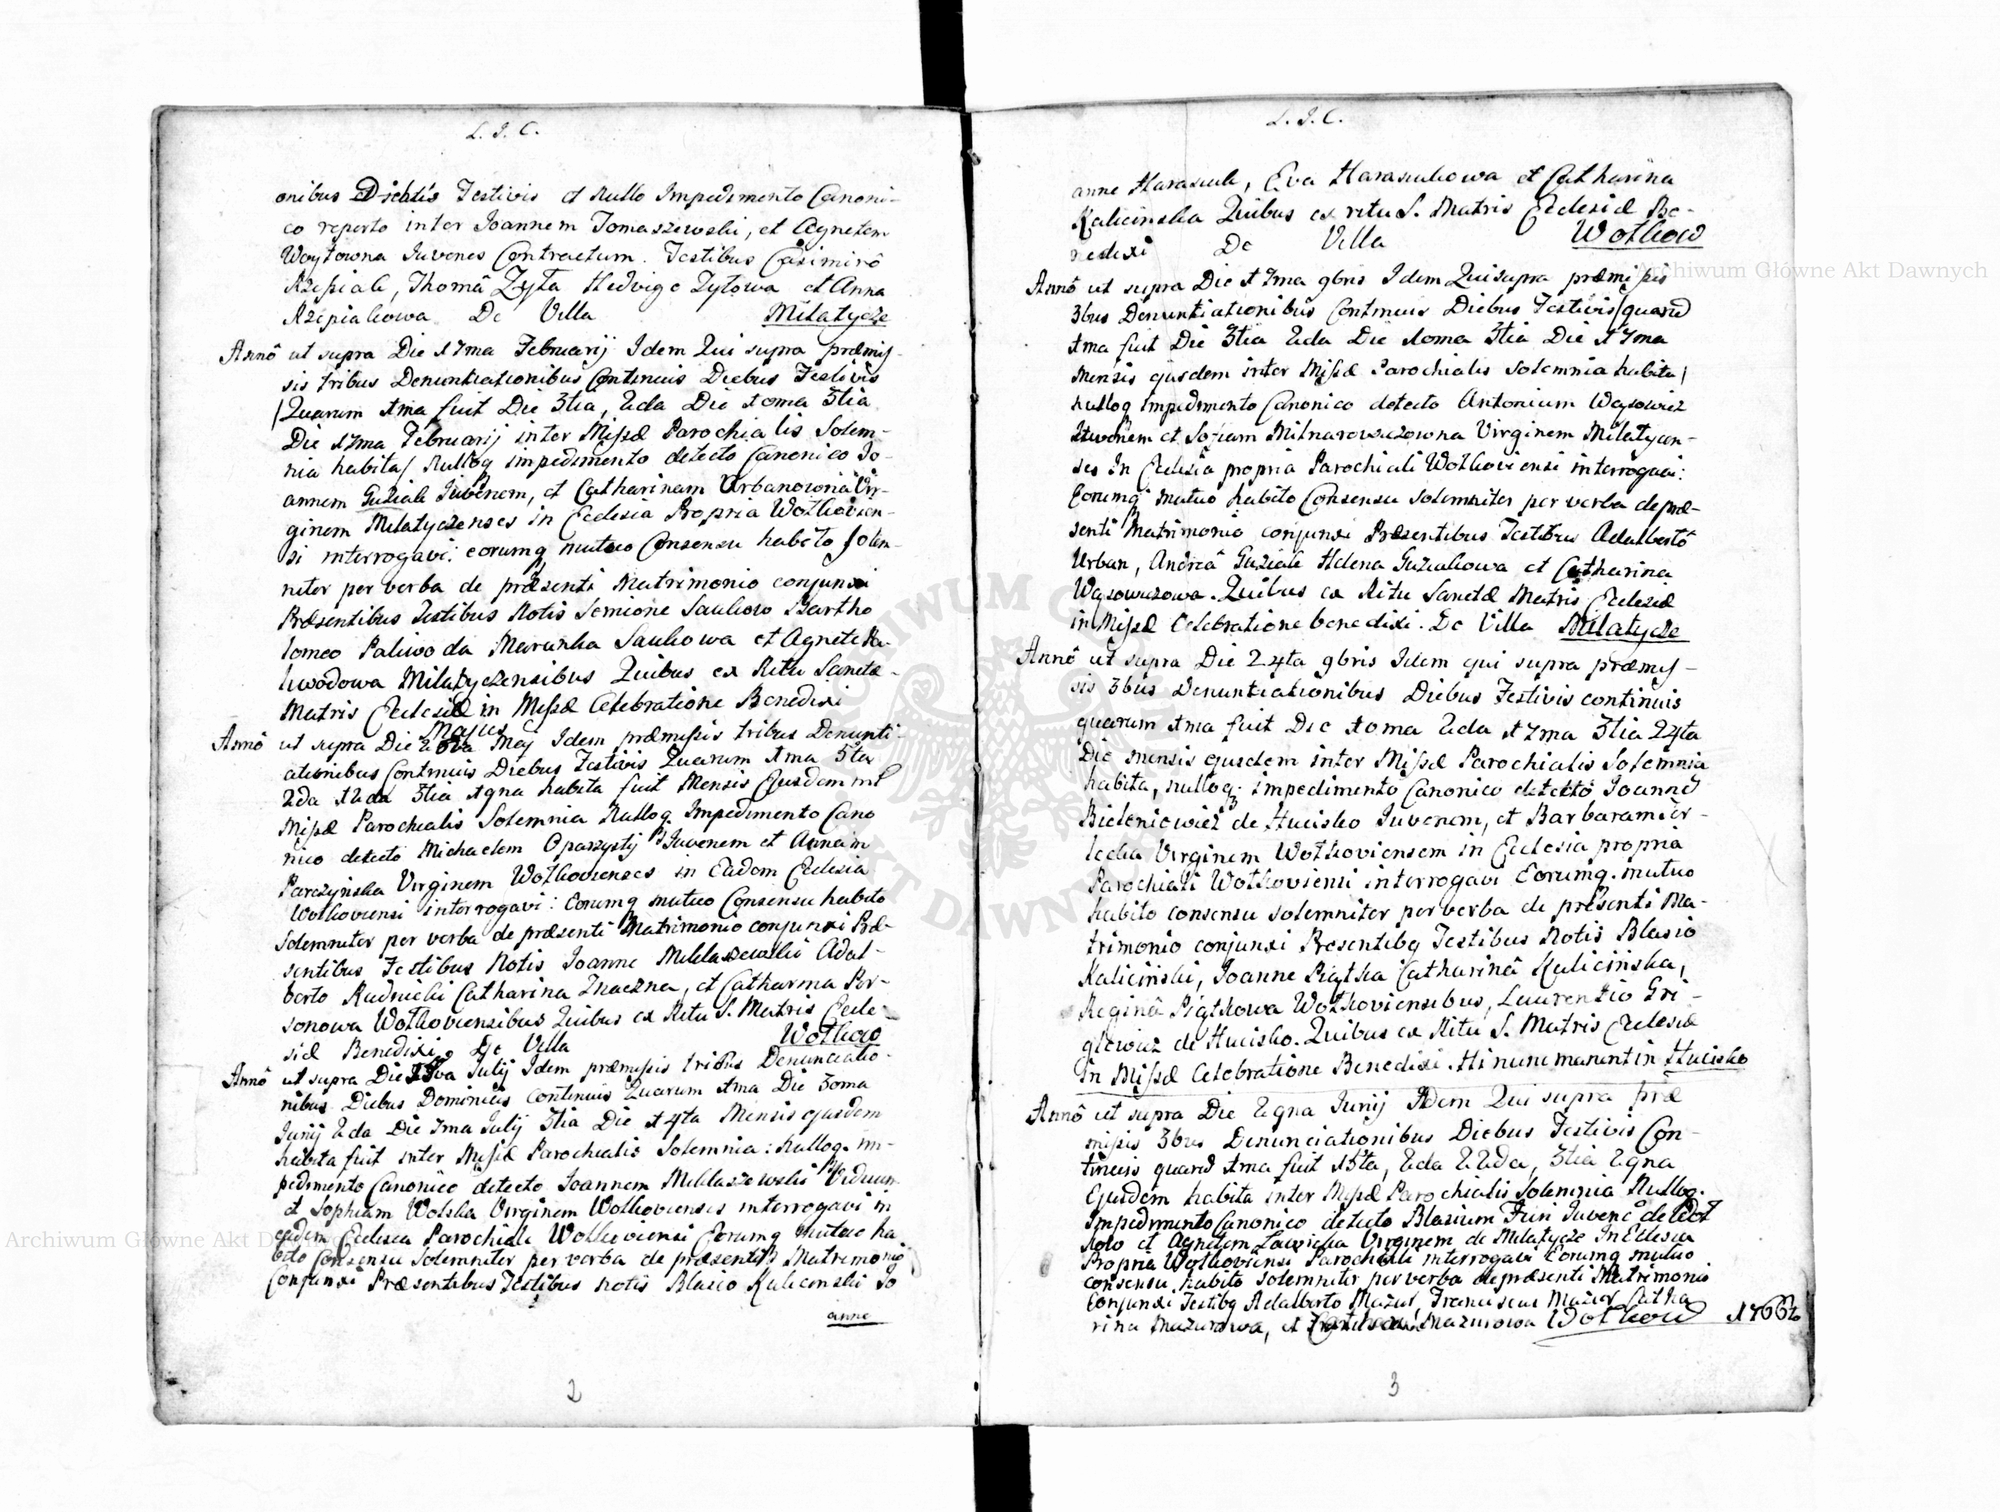 L. J. C.
onibus Diebus Festivis et Nullo Impedimento Canoni-
co reperto inter Joannem Tomaszewski, et Agnetem
Woytowna Iuvenes Contractum. Testibus Casimirô
Rzepiak, Thomâ Zyła Hedvige Zyłowa et Anna
Rzepiakowa De Villa Miłatycze
Annô ut supra Die 17ma Februarij Idem Qui supra præmis-
sis tribus Denuntiationibus Continuis Diebus Festivis
/Quarum 1ma fuit Die 3tia, 2da Die 10ma 3tia
Die 17ma Februarij inter Missæ Parochialis Solem-
nia habita/ Nulloq impedimento detecto Canonico Jo-
annem Guziak Iuvenem, et Catharinam Urbanowna Vir-
ginem Miłatyczenses in Ecclesia Propria Wołkovien-
si interrogavi: eorumq mutuo Consensu habito Solem-
niter per verba de præsenti Matrimonio conjunxi
Præsentibus Testibus Notis Semione Saukow Bartho
lomeo Paliwoda Marunka Saukowa et Agnete Pa-
liwodowa Miłatyczensibus Quibus ex Ritu Sanctæ
Matris Ecclesiæ in Missæ Celebratione Benedixi
Majus
Annô ut supra Die Maj Idem præmissis tribus Denunti-
ationibus Continuis Diebus Festivis Quarum 1ma 5ta
2da 12da 3tia 19na habita fuit Mensis Ejusdem int
Missæ Parochialis Solemnia Nulloq Impedimento Cano
nico detecto Michaelem Oparzysty Iuvenem et Annam
Parczyńska Virginem Wołkovienses in Eadem Ecclesia
Wołkoviensi interrogavi: Eorumq mutuo Consensu habito
Solemniter per verba de præsenti Matrimonio conjunxi Præ-
sentibus Testibus Notis Joanne Miklaszewski Adal-
berto Rudnicki Catharina Znaczna, et Catharina Per-
sonowa Wołkoviensibus Quibus ex Ritu S. Matris Eccle-
siæ Benedixi De Villa Wołkow
Annô ut supra Die Julij Idem præmissis tribus Denunciatio-
nibus Diebus Dominicis Continuis Quarum 1ma Die 30ma
Junij 2da Die 7ma Julij 3tia Die 14ta Mensis ejusdem
habita fuit inter Missæ Parochialis Solemnia: Nulloq. im-
pedimento Canonico detecto Joannem Miklaszewski Viduum
et Sophiam Wolska Virginem Wołkovienses interrogavi in
eadem Ecclesia Parochiali Wołkoviensi Eorumq mutuo ha
bito Consensu Solemniter per verba de præsenti Matrimonio
Conjunxi Præsentibus Testibus notis Blasio Kalicinski Jo
anne
2
L. J. C.
anne Harasiuk, Eva Harasiukowa et Catharina
Kalicinska Quibus ex ritu S. Matris Ecclesiæ Be-
nedixi De Villa Wołkow
Annô ut supra Die 17ma 9bris Idem Qui supra præmissis
3bus Denuntiationibus Continuis Diebus Festivis/quarũ
1ma fuit Die 3tia 2da Die 10ma 3tia Die 17ma
Mensis ejusdem inter Missæ Parochialis Solemnia habita/
nulloq impedimento Canonico detecto Antonium Wąsowicz
Iuvenem et Sofiam Milnarowiczowna Virginem Miłatycen-
ses In Ecclesia propria Parochiali Wołkoviensi interrogavi:
Eorumq mutuo habito Consensu Solemniter per verba de præ-
senti Matrimonio conjunxi Præsentibus Testibus Adalbertô
Urban, Andreâ Guziak Helena Guziakowa et Catharina
Wąsowiczowa. Quibus ex Ritu Sanctæ Matris Ecclesiæ
in Missæ Celebratione benedixi. De Villa Miłatycze
Annô ut supra Die 24ta 9bris Idem qui supra præmis-
sis 3bus Denuntiationibus Diebus Festivis continuis
quarum 1ma fuit Die 10ma 2da 17ma 3tia 24ta
Die mensis ejusdem inter Missæ Parochialis Solemnia
habita, nulloq. impedimento Canonico detectô Joannẽ
Bieleniewicz de Hucisko Iuvenem, et Barbaram
Virginem Wołkoviensem in Ecclesia propria
Parochiali Wołkoviensi interrogavi Eorumq. mutuo
habito consensu solemniter per verba de præsenti Ma-
trimonio conjunxi Præsentibq Testibus Notis Blasio
Kaliciński, Joanne Piątka Catharinâ Kalicińska,
Reginâ Piątkowa Wołkoviensibus, Laurentio Gri-
glewicz de Hucisko. Quibus ex Ritu S. Matris Ecclesiæ
in Missæ Celebratione Benedixi. Hi nunc manent in Hucisko
Annô ut supra Die 29na Junij Idem Qui supra præ
missis 3bus Denunciationibus Diebus Festivis Con-
tinuis quarũ 1ma fuit 15ta, 2da 22da, 3tia 29na
Ejusdem habita inter Missæ Parochialis Solemnia Nulloq.
Impedimento Canonico detecto Blasium Furi Iuvenẽ de Woł
kow et Agnetem Ławicka Virginem de Miłatycze In Ecclesia
Propria Wołkoviensi Parochiali interrogavi Eorumq mutuo
consensu habito Solemniter per verba de præsenti Matrimonio
Conjunxi Testibq Adalberto Mazur, Franciscus Mazur Catha
rina Mazurowa, et Mazurowa Wołkow 1766
3
Archiwum Główne Akt Dawnych
Archiwum Główne Akt Dawnych
ARCHIWUM GŁÓWNE AKT DAWNYCH